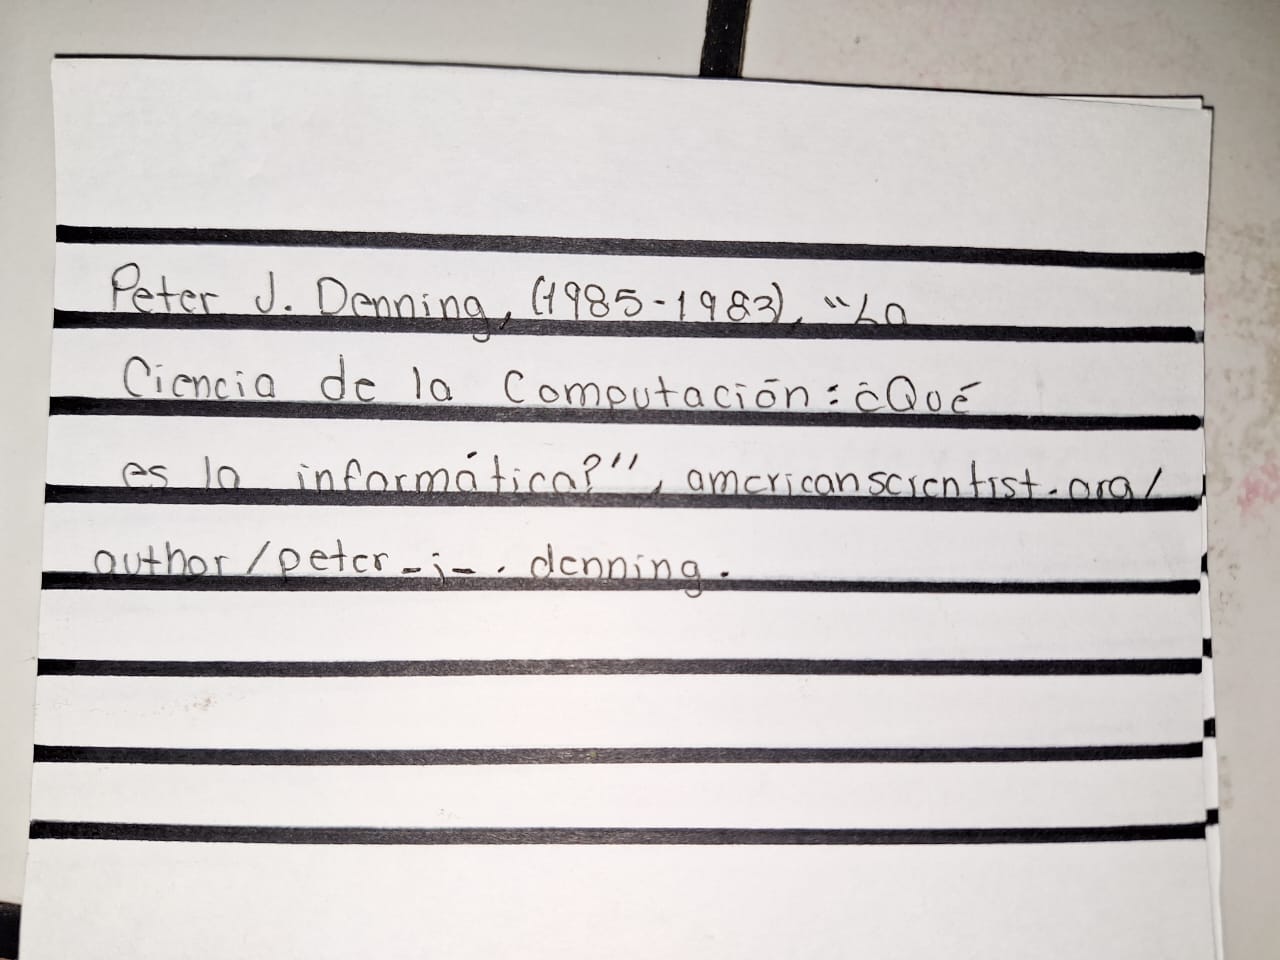 Peter J. Denning, (1985-1983), "La
Ciencia de la Computación: ¿Qué
es la informática?", americanscientist.org/
author/peter-j-. denning.